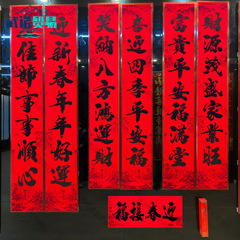 財源茂盛家業旺
富貴平安福滿堂
喜迎四季平安福
笑納八方鴻運財
迎新春年年好運
佳節事事順心
迎春接福